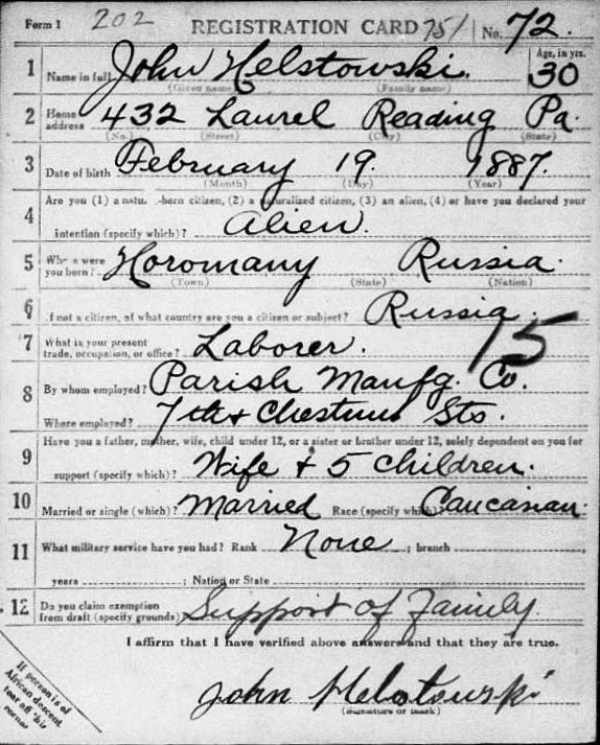 Form 1 202 REGISTRATION CARD 751 No. 72.
1 Name in full John Helstowski. Age, in yrs. 30
(Given name) (Family name)
2 Home address 432 Laurel Reading Pa.
(No.) (Street) (City) (State)
3 Date of birth February 19. 1887.
(Month) (Day) (Year)
Are you (1) a natural-born citizen, (2) a naturalized citizen, (3) an alien, (4) or have you declared your
4 intention (specify which)? Alien.
5 Where were you born? Horomany Russia.
(Town) (State) (Nation)
6 If not a citizen, of what country are you a citizen or subject? Russia.
15
7 What is your present trade, occupation, or office? Laborer.
8 By whom employed? Parish Manfg. Co.
Where employed? 7th & Chestnut Sts.
9 Have you a father, mother, wife, child under 12, or a sister or brother under 12, solely dependent on you for
support (specify which)? Wife + 5 children.
10 Married or single (which)? Married Race (specify which)? Caucasian.
11 What military service have you had? Rank None; branch
years ; Nation or State
12 Do you claim exemption from draft (specify grounds) Support of Family.
I affirm that I have verified above answers and that they are true.
John Helstowski
(Signature or mark)
If person is of
African descent
tear off this
corner